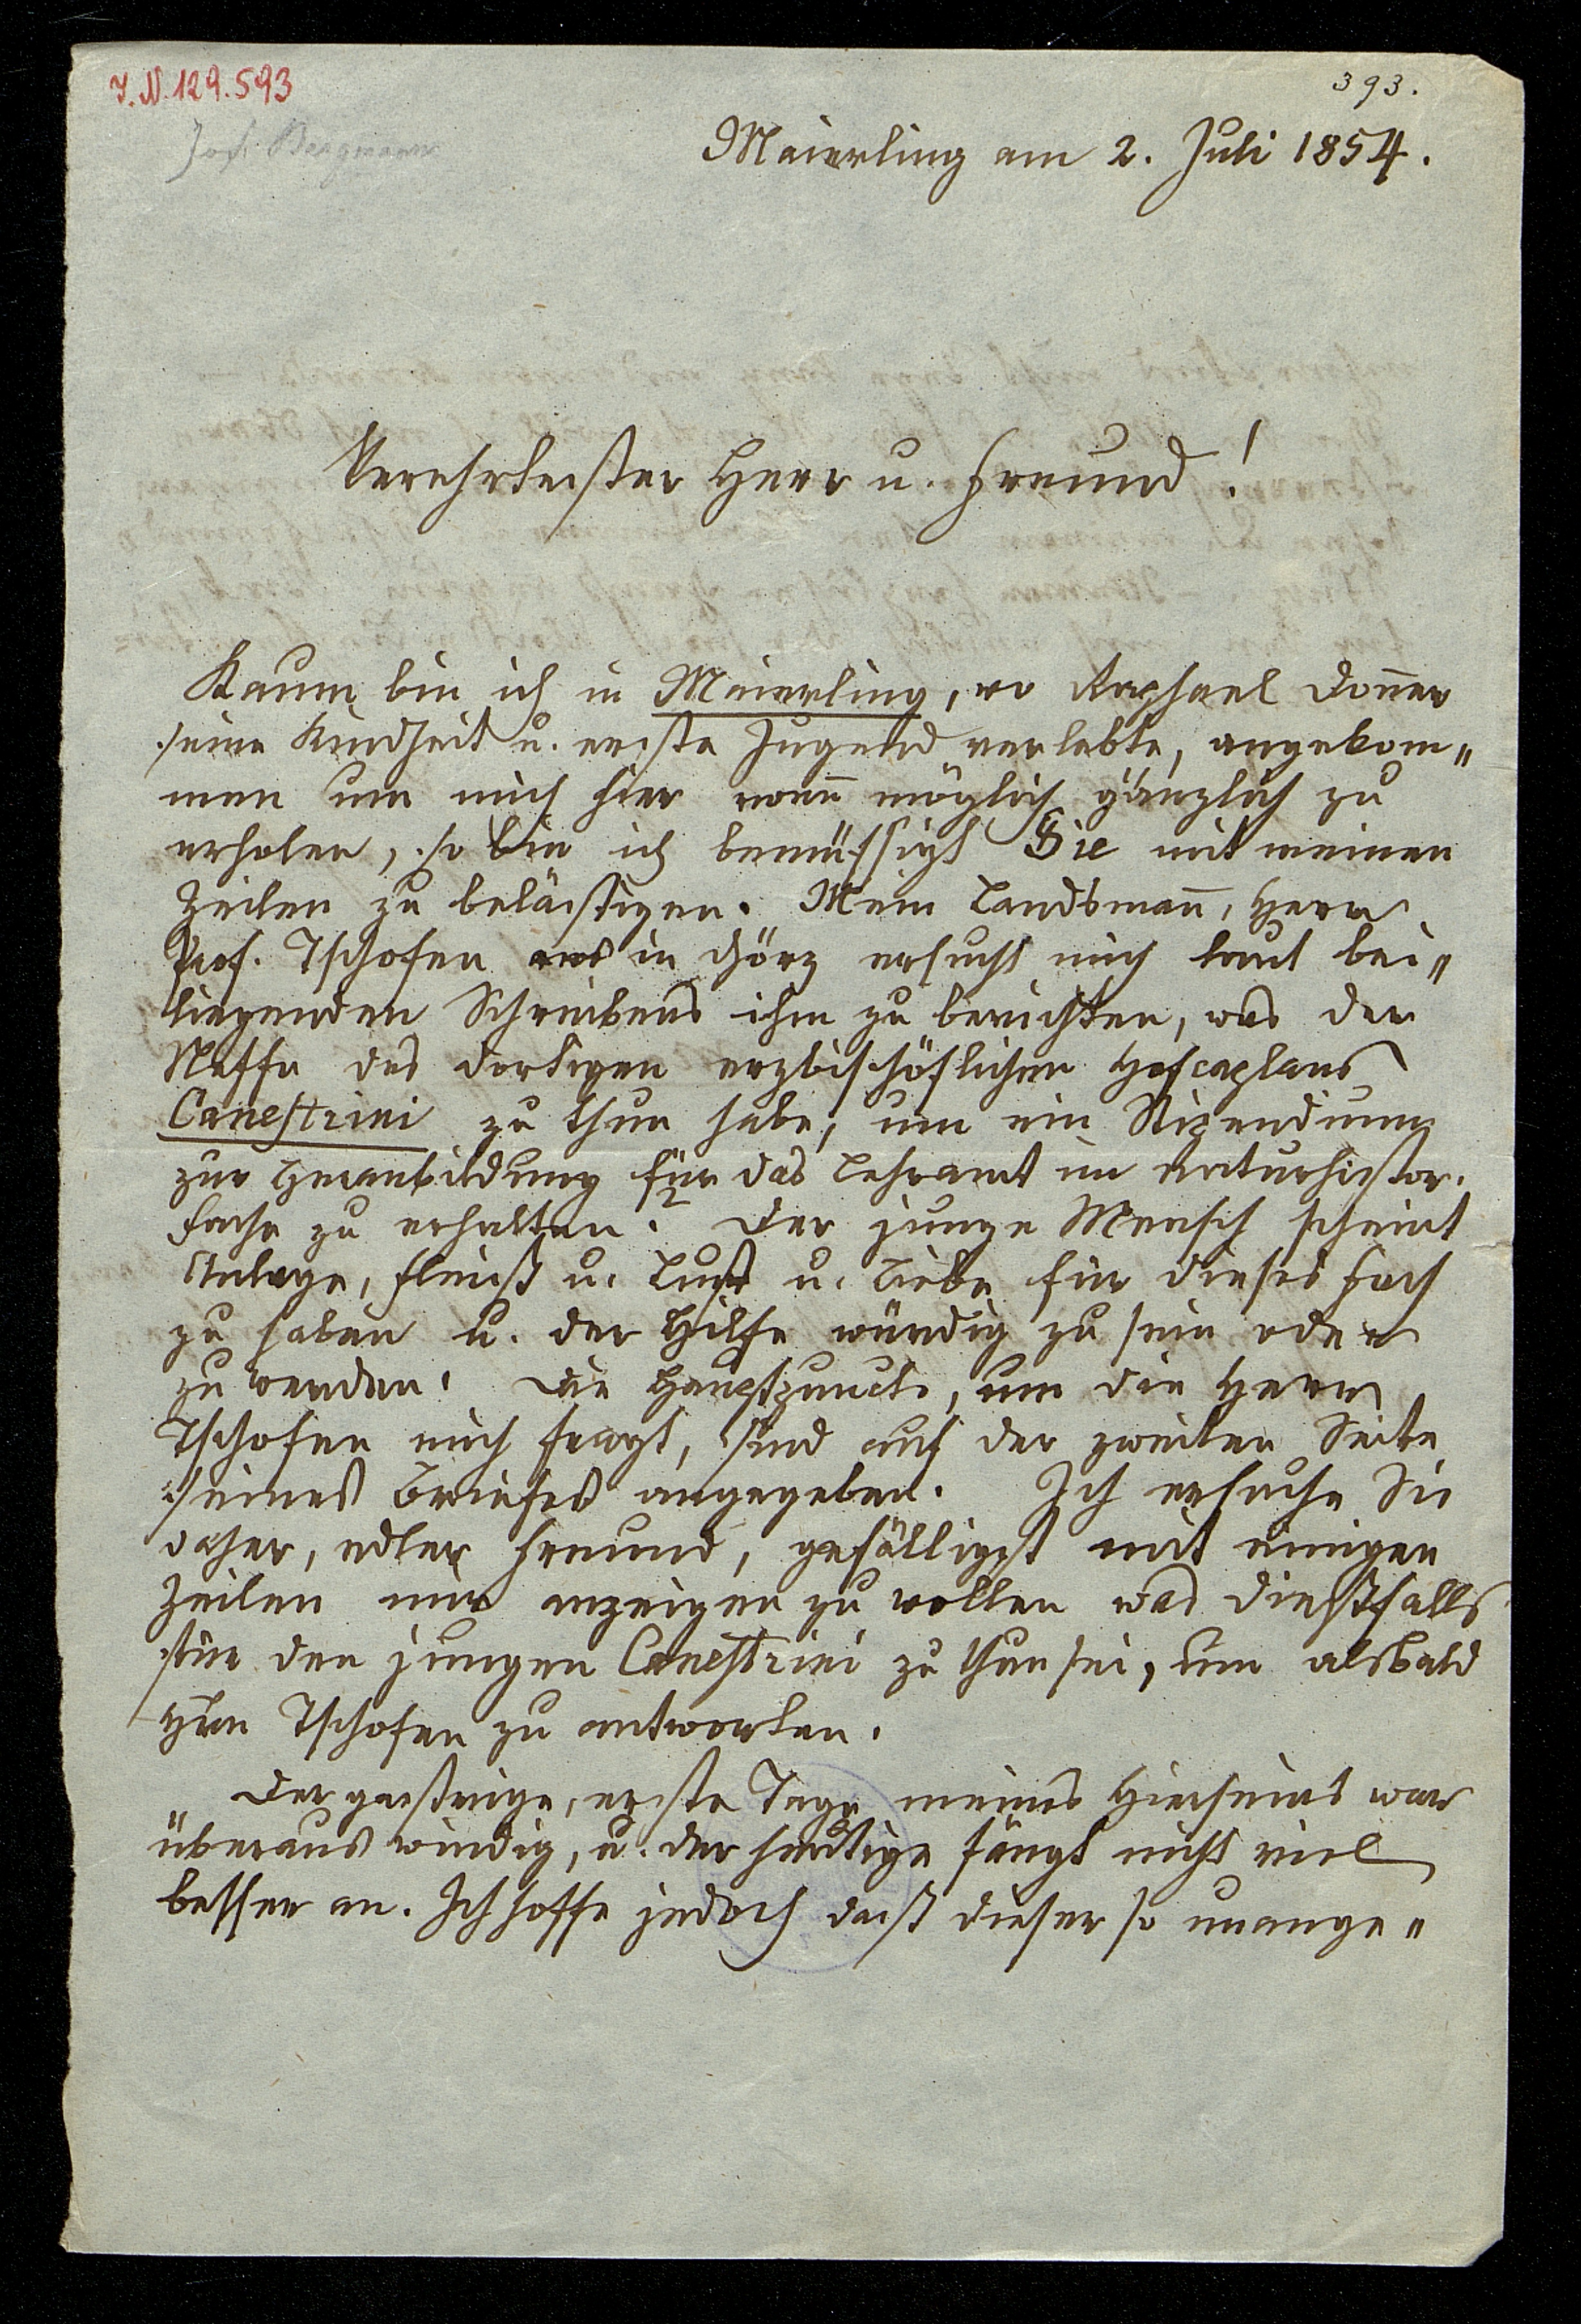 I.N. 129.593
393.
Jos. Bergmann
Maierling am 2. Juli 1854.
Verehrtester Herr u. Freund!
Kaum bin ich in Maierling, wo Raphael Doner
seine Kindheit u. erste Jugend verlebte, angekom„
men um mich hier wen̄ möglich gänzlich zu
erholen, so bin ich bemüssigt Sie mit meinen
Zeilen zu belästigen. Mein Landsman̄, Herr
Prof. Tschofen aus in Görz ersucht mich laut bei„
liegenden Schreibens ihm zu berichten, was der
Neffe des dortigen erzbischöflichen Hofcaplans
Canestrini zu thun habe, um ein Stipendium
zur Heranbildung für das Lehramt im naturhistor.
Fache zu erhalten? Der junge Mensch scheint
Anlage, Fleiß u. Lust u. Liebe für dieses Fach
zu haben u. der Hilfe würdig zu sein oder
zu werden. Die Hauptpuncte, um die Herr
Tschofen mich fragt, sind auf der zweiten Seite
seines Briefes angegeben. Ich ersuche Sie
daher, edler Freund, gefälligst mit einigen
Zeilen mir anzeigen zu wollen was dießfalls
für den jungen Canestrini zu thun sei, um alsbald
Hrn Tschofen zu antworten.
Der gestrige, erste Tage meines Hierseins war
überaus windig, u. der heutige fängt nicht viel
besser an. Ich hoffe jedoch daß dieser so unange„